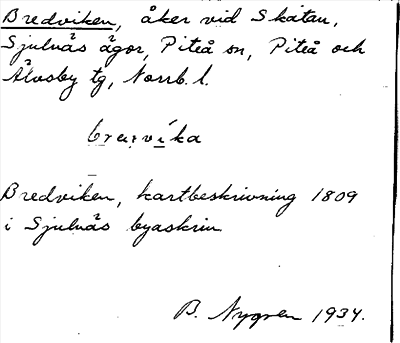 Bredviken, åker vid Skatan,
Sjulnäs ägor, Piteå sn, Piteå och
Älvsby tg, Norrb. l.
Bredviken, kartbeskrivning 1809
i Sjulnäs byaskrin
B. Nygren 1934.